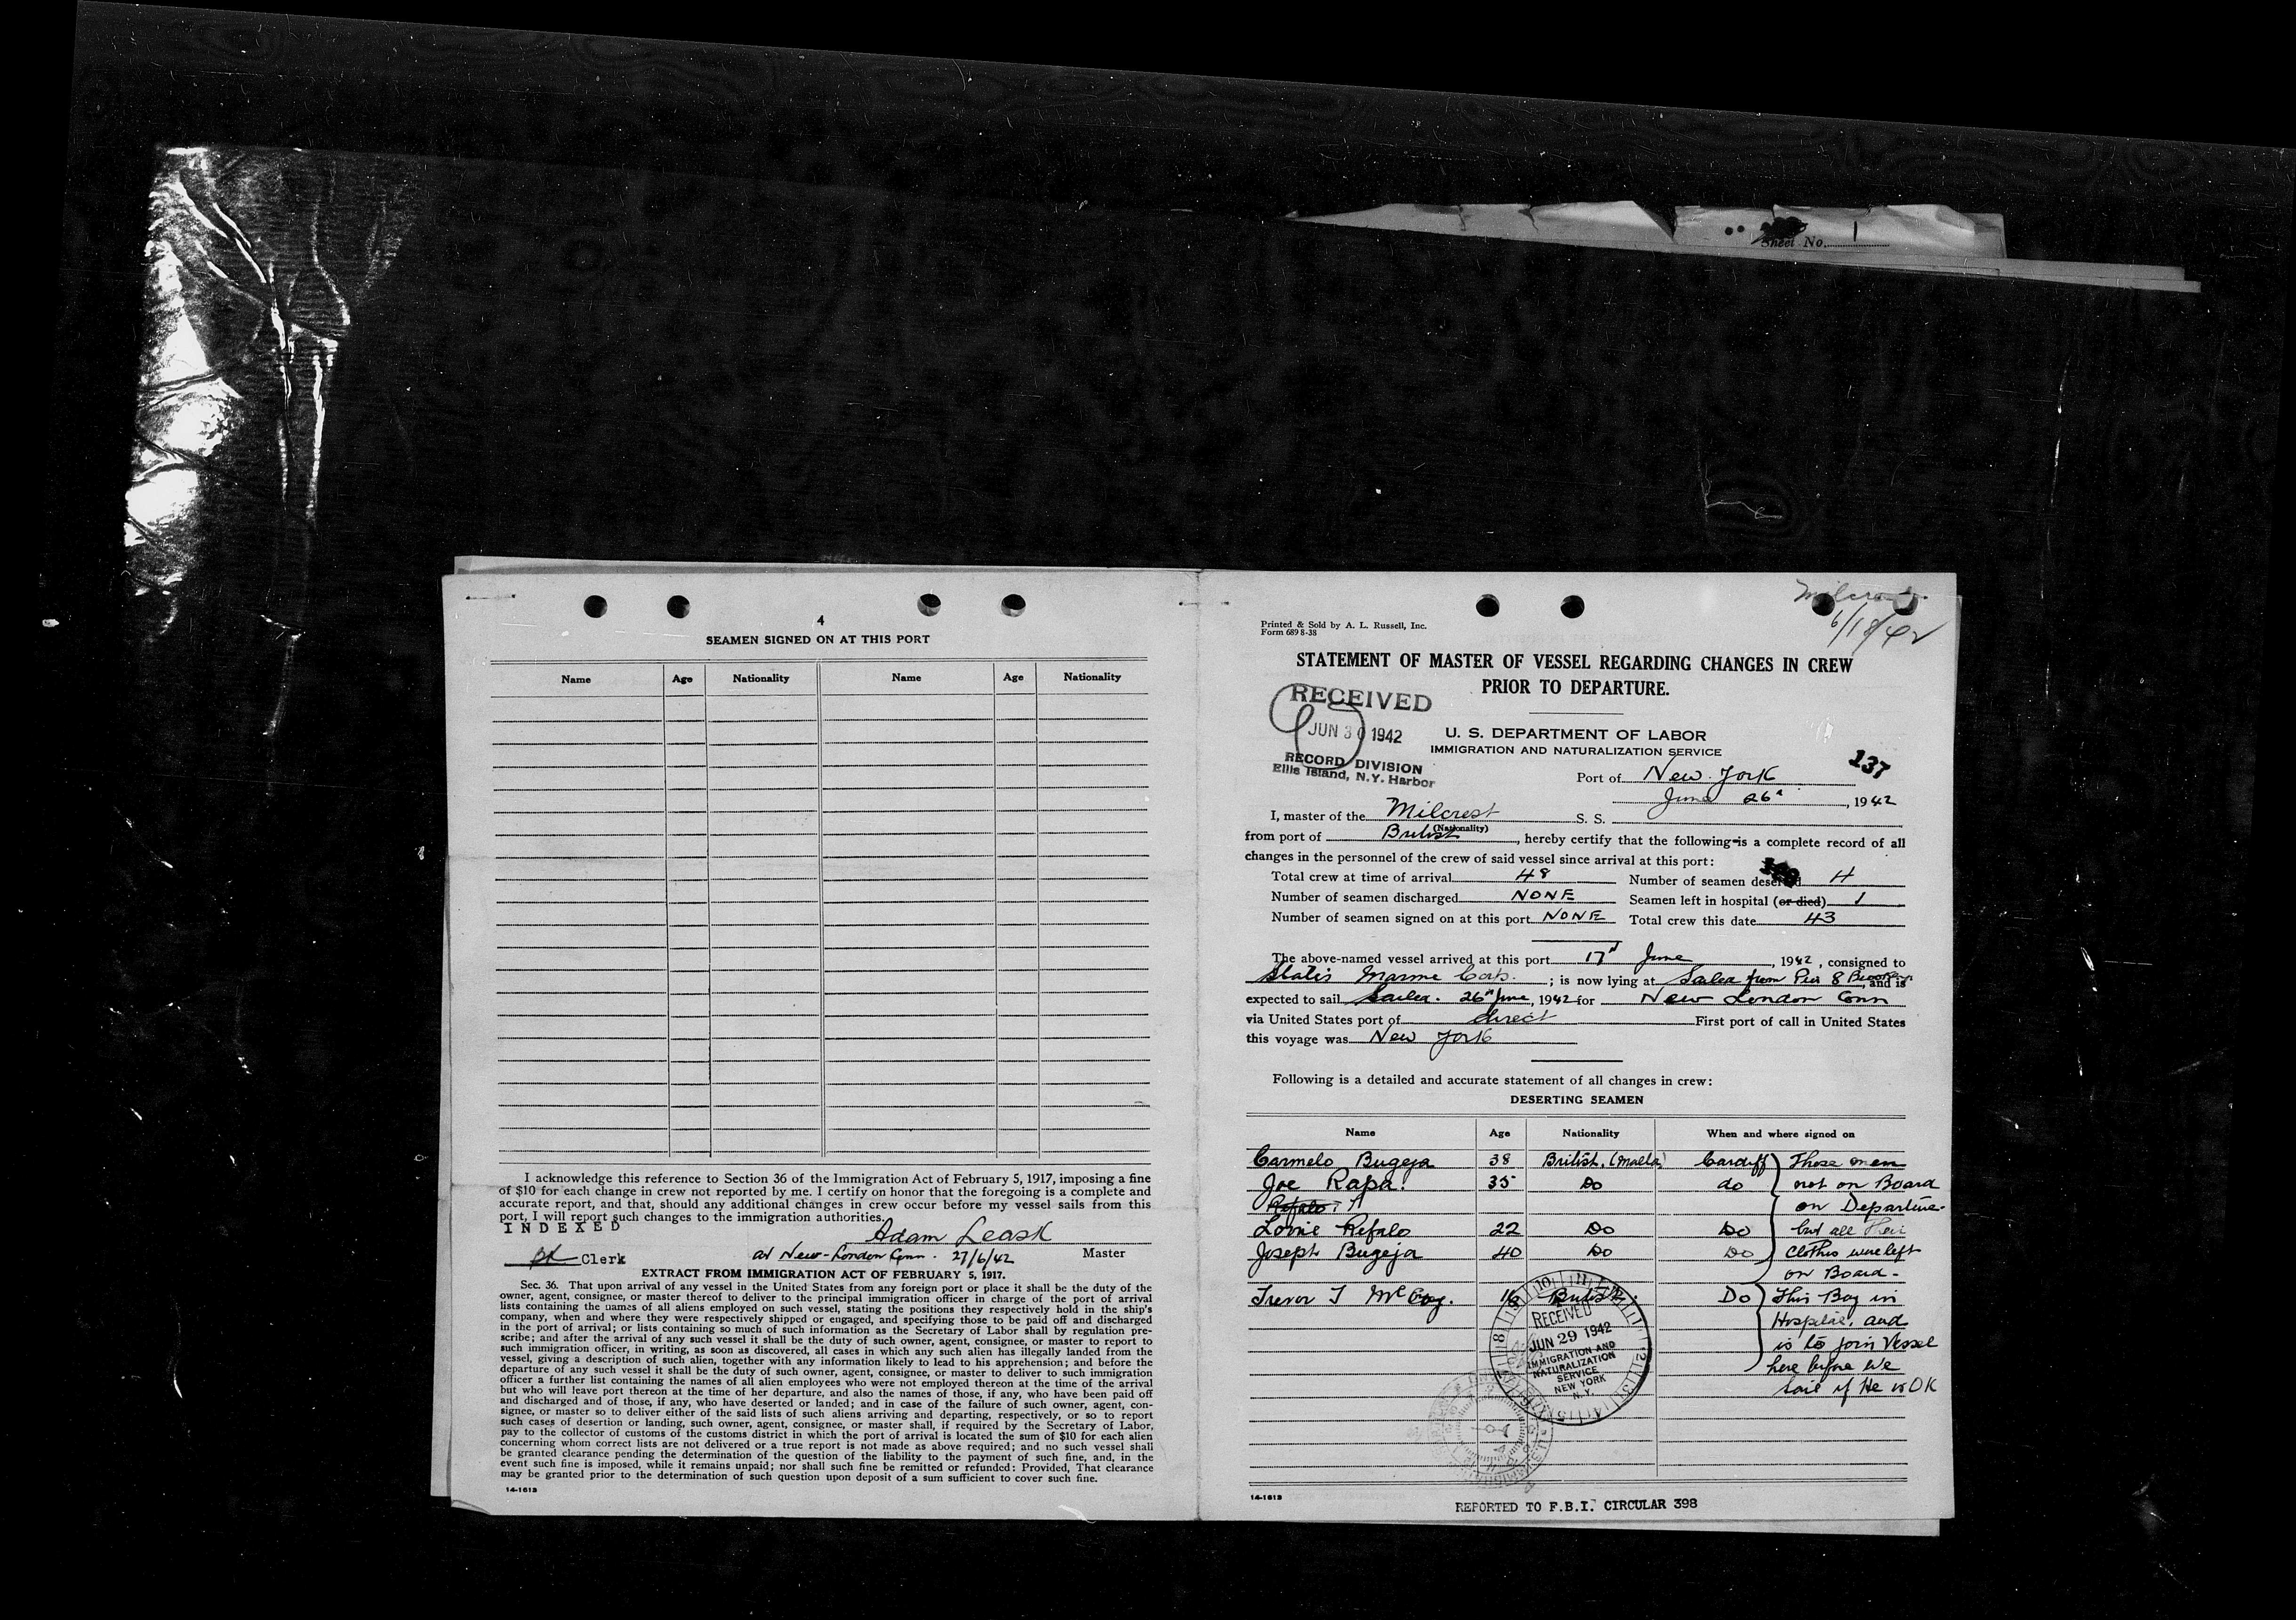 Sheet No. 1
4
SEAMEN SIGNED ON AT THIS PORT
Name Age Nationality Name Age Nationality
I acknowledge this reference to Section 36 of the Immigration Act of February 5, 1917, imposing a fine
of $10 for each change in crew not reported by me. I certify on honor that the foregoing is a complete and
accurate report, and that, should any additional changes in crew occur before my vessel sails from this
port, I will report such changes to the immigration authorities.
INDEXED
Adam Leask
Clerk at New-London Conn. 27/6/42 Master
EXTRACT FROM IMMIGRATION ACT OF FEBRUARY 5, 1917.
Sec. 36. That upon arrival of any vessel in the United States from any foreign port or place it shall be the duty of the
owner, agent, consignee, or master thereof to deliver to the principal immigration officer in charge of the port of arrival
lists containing the names of all aliens employed on such vessel, stating the positions they respectively hold in the ship's
company, when and where they were respectively shipped or engaged, and specifying those to be paid off and discharged
in the port of arrival; or lists containing so much of such information as the Secretary of Labor shall by regulation pre-
scribe; and after the arrival of any such vessel it shall be the duty of such owner, agent, consignee, or master to report to
such immigration officer, in writing, as soon as discovered, all cases in which any such alien has illegally landed from the
vessel, giving a description of such alien, together with any information likely to lead to his apprehension; and before the
departure of any such vessel it shall be the duty of such owner, agent, consignee, or master to deliver to such immigration
officer a further list containing the names of all alien employees who were not employed thereon at the time of the arrival
but who will leave port thereon at the time of her departure, and also the names of those, if any, who have been paid off
and discharged and of those, if any, who have deserted or landed; and in case of the failure of such owner, agent, con-
signee, or master so to deliver either of the said lists of such aliens arriving and departing, respectively, or so to report
such cases of desertion or landing, such owner, agent, consignee, or master shall, if required by the Secretary of Labor,
pay to the collector of customs of the customs district in which the port of arrival is located the sum of $10 for each alien
concerning whom correct lists are not delivered or a true report is not made as above required; and no such vessel shall
be granted clearance pending the determination of the question of the liability to the payment of such fine, and, in the
event such fine is imposed, while it remains unpaid; nor shall such fine be remitted or refunded: Provided, That clearance
may be granted prior to the determination of such question upon deposit of a sum sufficient to cover such fine.
14-1613
6/18/42
Printed & Sold by A. L. Russell, Inc.
Form 689 8-38
STATEMENT OF MASTER OF VESSEL REGARDING CHANGES IN CREW
PRIOR TO DEPARTURE.
RECEIVED
JUN 30 1942
RECORD DIVISION
Ellis Island, N.Y. Harbor
U. S. DEPARTMENT OF LABOR
IMMIGRATION AND NATURALIZATION SERVICE
137
Port of New York
June 26th, 1942
I, master of the Milcrest S. S.
(Nationality)
from port of British, hereby certify that the following is a complete record of all
changes in the personnel of the crew of said vessel since arrival at this port:
Total crew at time of arrival 48 Number of seamen deserted 4
Number of seamen discharged NONE Seamen left in hospital (or died) 1
Number of seamen signed on at this port NONE Total crew this date 43
The above-named vessel arrived at this port 17th June, 1942, consigned to
States Marine Corp.; is now lying at Sailed from Pier 8 Brooklyn, and is
expected to sail Sailed. 26th June, 1942 for New London Conn
via United States port of direct First port of call in United States
this voyage was New York
Following is a detailed and accurate statement of all changes in crew:
DESERTING SEAMEN
Name Age Nationality When and where signed on
Carmelo Bugeja 38 British. (Malta) Cardiff Those men
Joe Rapa. 35 Do do not on Board
Refalo, A on Departure.
Lorrie Refalo 22 Do Do but all their
Joseph Bugeja 40 Do Do Clothes were left
on Board.
Trevor T McCoy. 16 British. Do This Boy in
Hospital, and
is to join Vessel
here before we
sail if He is OK
RECEIVED
JUN 29 1942
IMMIGRATION AND
NATURALIZATION
SERVICE
NEW YORK
N. Y.
14-1613
REPORTED TO F.B.I. CIRCULAR 398